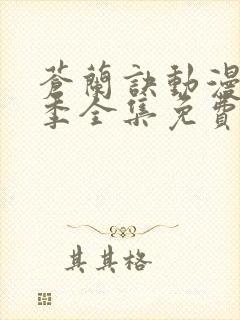 蒼蘭訣動漫
季全集免費
其其格